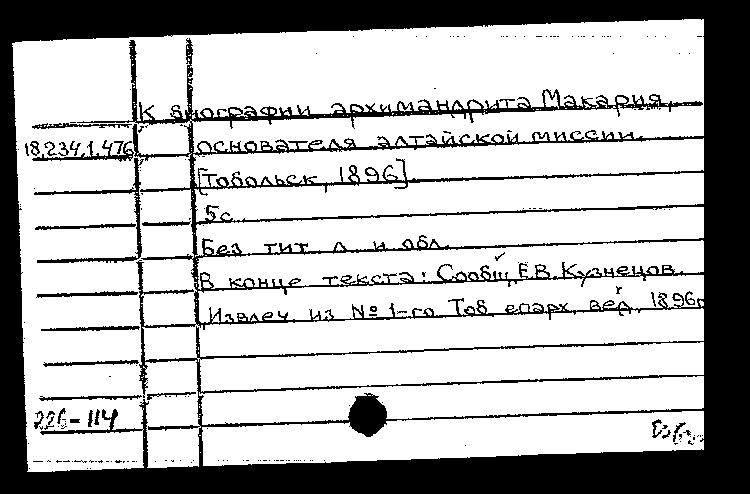 К биографии архимандрита Макария,
18.234.1.476 основателя алтайской миссии.
[Тобольск, 1896].
5с.
Без тит. л. и обл.
В конце текста: Сообщ. Е.В. Кузнецов.
Извлеч. из № 1-го Тоб. епарх. вед. 1896г
226-114